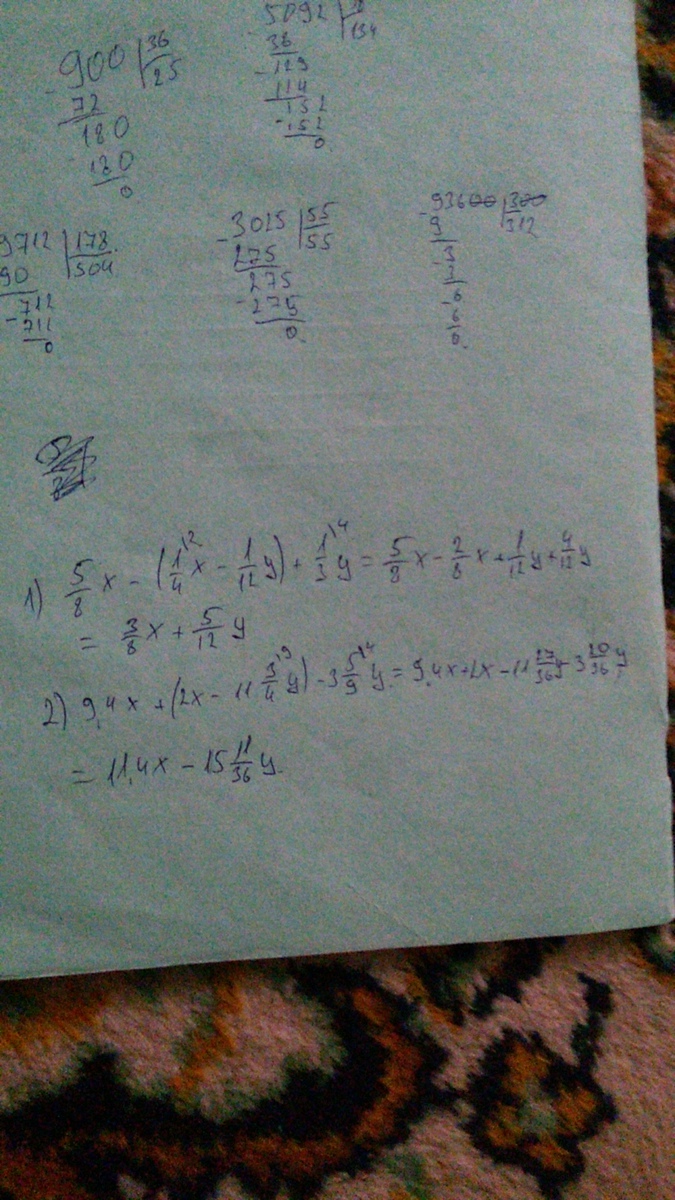 900 36
72 25
180
- 180
0
5092
36 134
- 129
114
152
- 152
0
9712 178
90 504
712
- 712
0
- 3025 55
275 55
275
- 275
0
- 93600 300
9 312
3
3
- 6
6
0
1) 5/8 x - (1/4\2 x - 1/12 y) + 1/3\4 y = 5/8 x - 2/8 x + 1/12 y + 4/12 y
= 3/8 x + 5/12 y
2) 9,4x + (2x - 11 3/4\9 y) - 3 5/9\4 y = 9,4x + 2x - 11 27/36 y - 3 20/36 y
= 11,4x - 15 11/36 y.